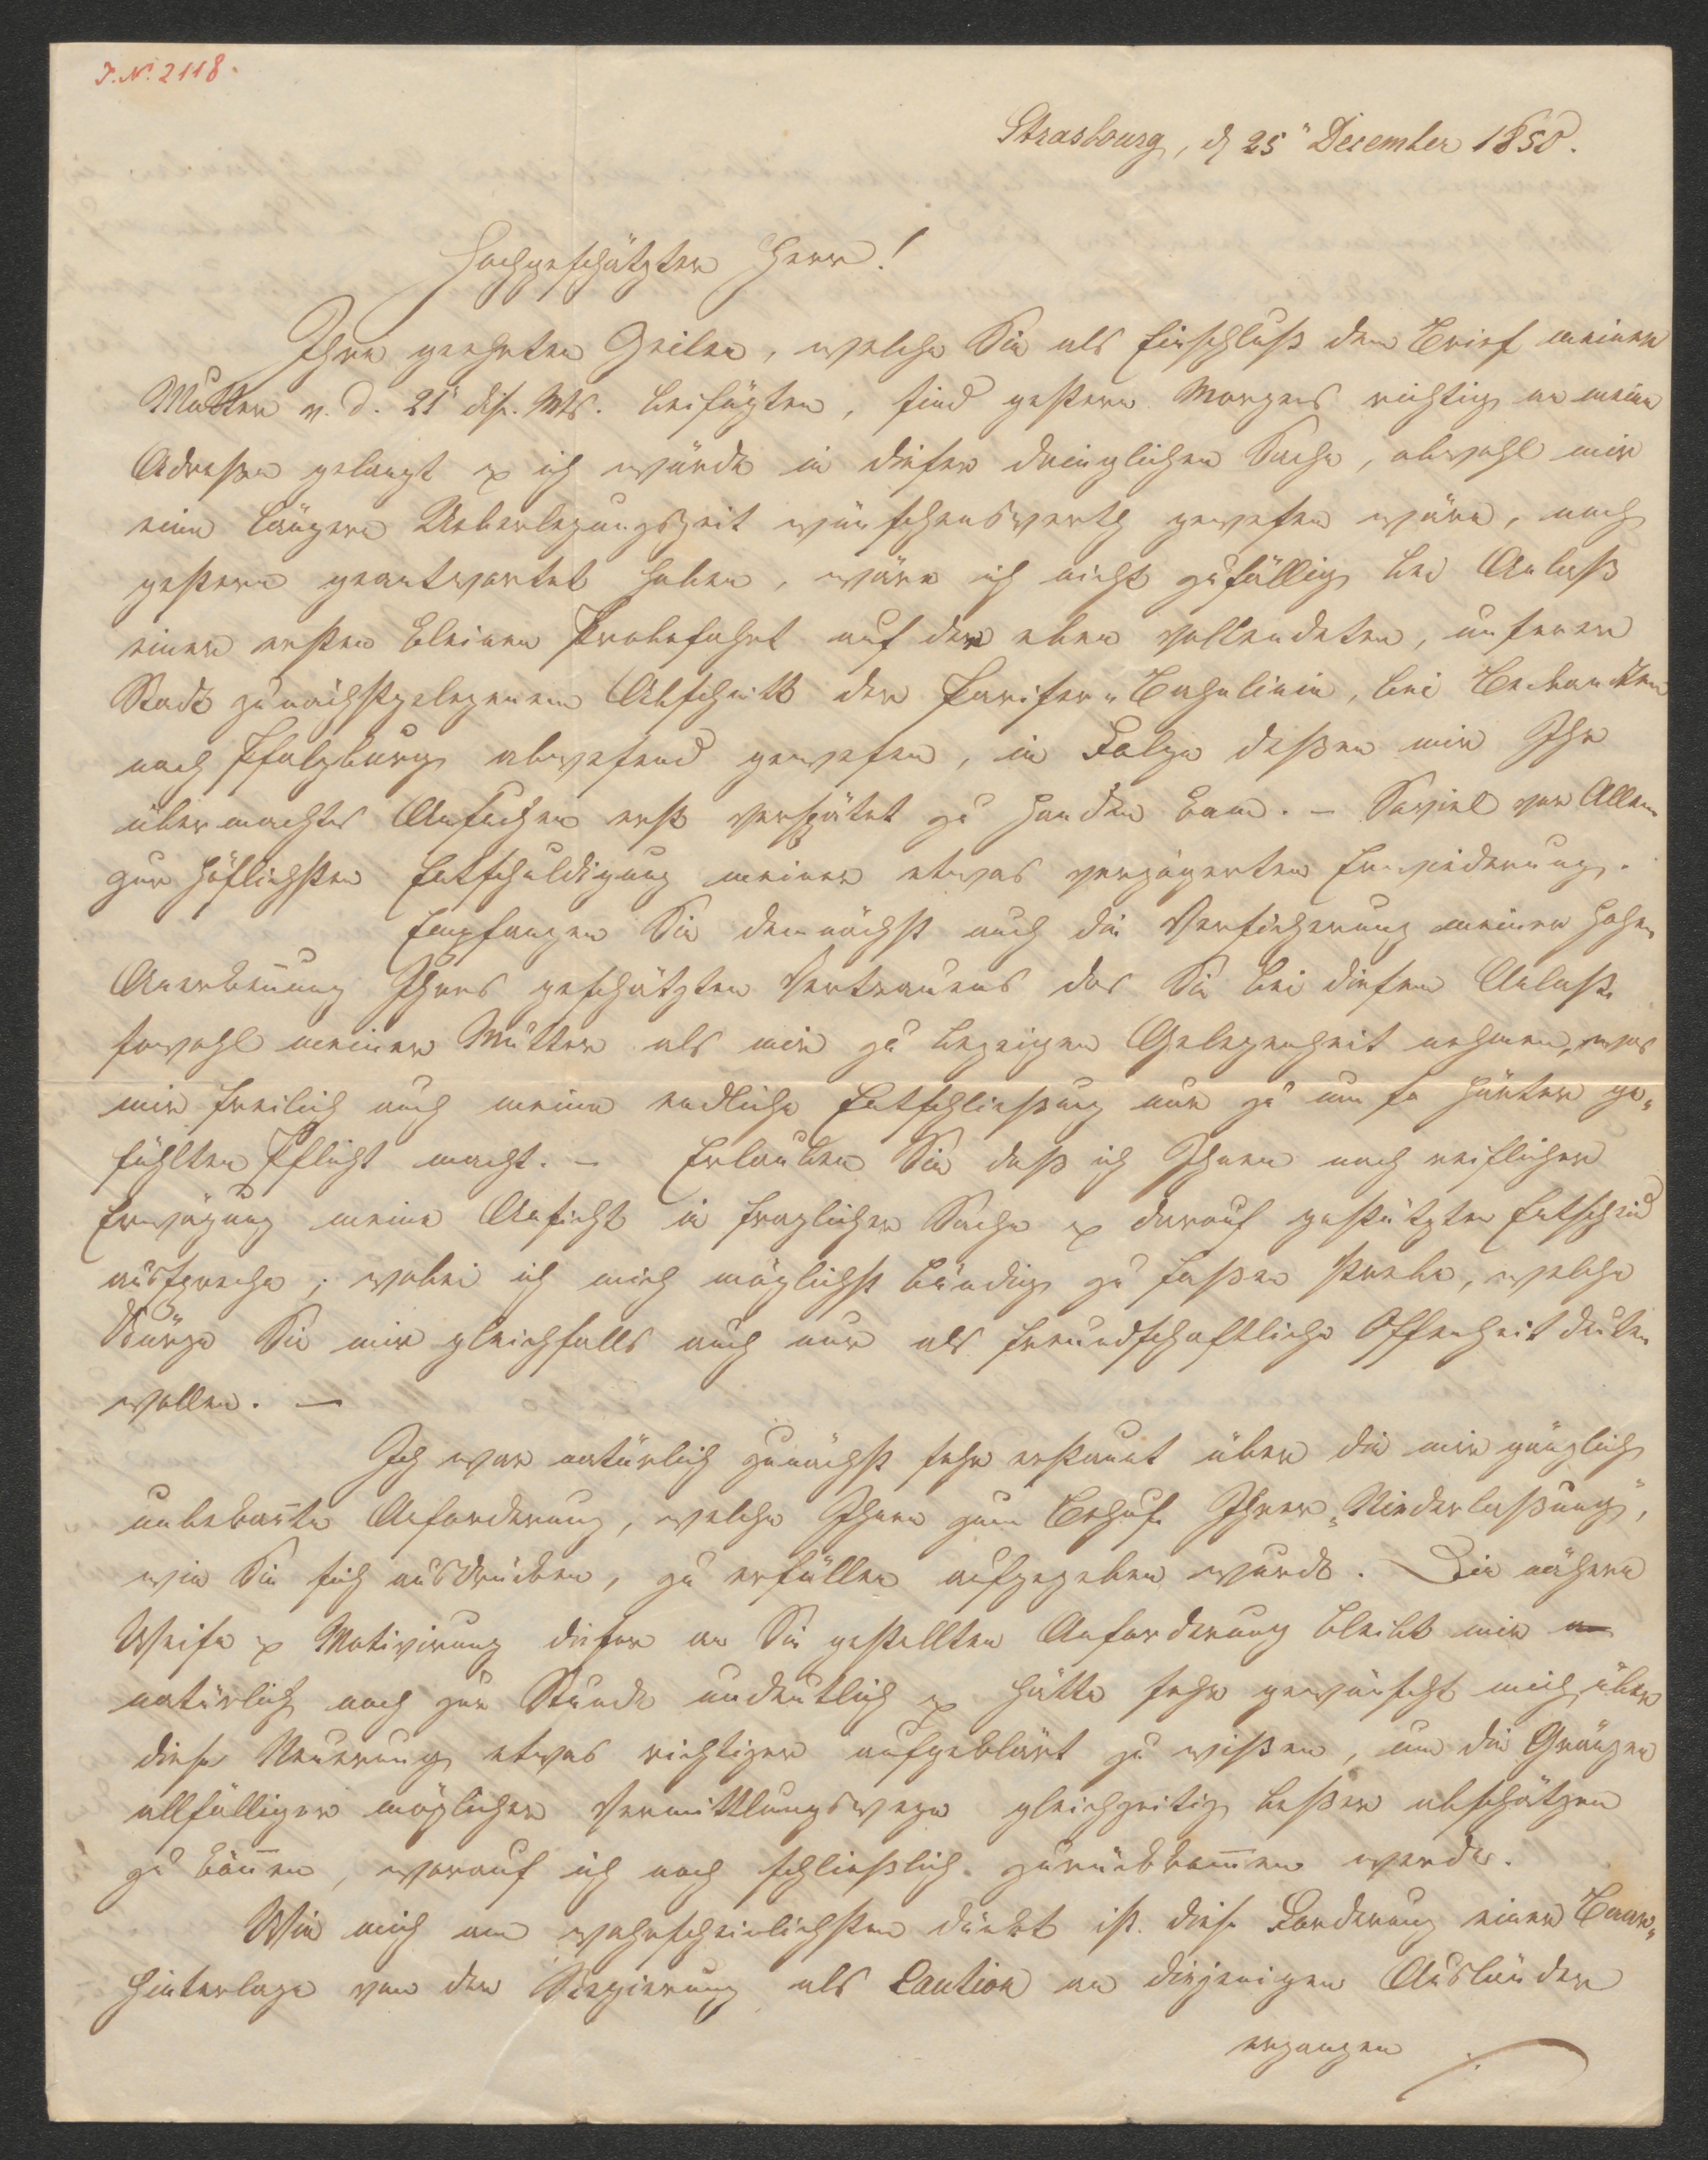 J. N. 2118.
Strasbourg, d 25" December 1850.
Hochgeschätzter Herr!
Ihre geehrten Zeilen, welche Sie als Einschluß dem Brief meiner
Mutter v. d. 21" dß. Mts. beifügten, sind gestern Morgens richtig an meine
Adresse gelangt & ich würde in dieser dringlichen Sache, obwohl mir
eine längere Ueberlegungszeit wünschenswerth gewesen wäre, noch
gestern geantwortet haben, wäre ich nicht zufällig bei Anlaß
einer ersten kleinen Probefahrt auf der eben vollendeten, unserer
Stadt zunächstgelegenem Abschnitt der Pariser-Bahnlinie, bei Bekannten
nach Pfalzburg abwesend gewesen, in Folge dessen mir Ihr
übermachtes Ansuchen erst verspätet zu Handen kam. – Soviel vor Allem
zur höflichsten Entschuldigung meiner etwas verzögerten Erwiederung.
Empfangen Sie demnächst auch die Versicherung meiner hohen
Anerkeñung Ihres geschätzten Vertrauens das Sie bei diesem Anlaße
sowohl meiner Mutter als mir zu bezeigen Gelegenheit nehmen, was
mir freilich auch meine endliche Entschließung nur zu um so härter ge-
fühlten Pflicht macht. – Erlauben Sie daß ich Ihnen nach reiflicher
Erwägung meine Ansicht in fraglicher Sache & darauf gestützten Entscheid
ausspreche; wobei ich mich möglichst bündig zu faßen strebe, welche
Kürze Sie mir gleichfalls auch nur als freundschaftliche Offenheit deuten
wollen. –
Ich war natürlich zunächst sehr erstaunt über die mir gänzlich
unbekañte Anforderung, welche Ihnen zum Behufe Ihrer „Niederlaßung",
wie Sie sich ausdrücken, zu erfüllen aufgegeben wurde. Die nähere
Weise & Motivirung dieser an Sie gestellten Anforderung bleibt mir
natürlich noch zur Stunde undeutlich & hätte sehr gewünscht mich über
diese Neuerung etwas richtiger aufgeklärt zu wißen, um die Gränzen
allfälliger möglicher Vermittlungswege gleichzeitig beßer abschätzen
zu köñen, worauf ich noch schließlich zurückkom̄en werde.
Wie mich am wahrscheinlichsten dünkt ist diese Forderung einer Baar-
hinterlage von der Regierung als Caution an diejenigen Ausländer
ergangen